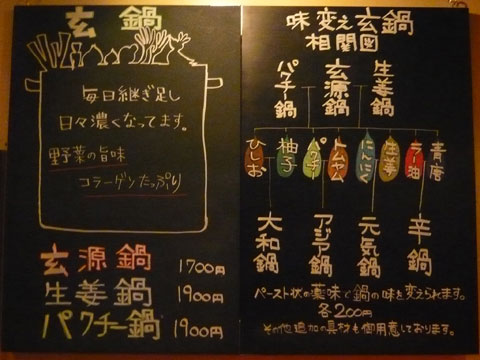 玄 鍋
毎日継ぎ足し
日々濃くなってます。
野菜の旨味
コラーゲンたっぷり
玄源鍋 1700円
生姜鍋 1900円
パクチー鍋 1900円
味変え玄鍋
相関図
パクチー鍋
玄源鍋
生姜鍋
ひしお
柚子
パクチー
トムヤム
にんにく
生姜
ラー油
青唐
大和鍋
アジア鍋
元気鍋
辛鍋
ペースト状の薬味で鍋の味を変えられます。
各200円
その他追加の具材も御用意しております。